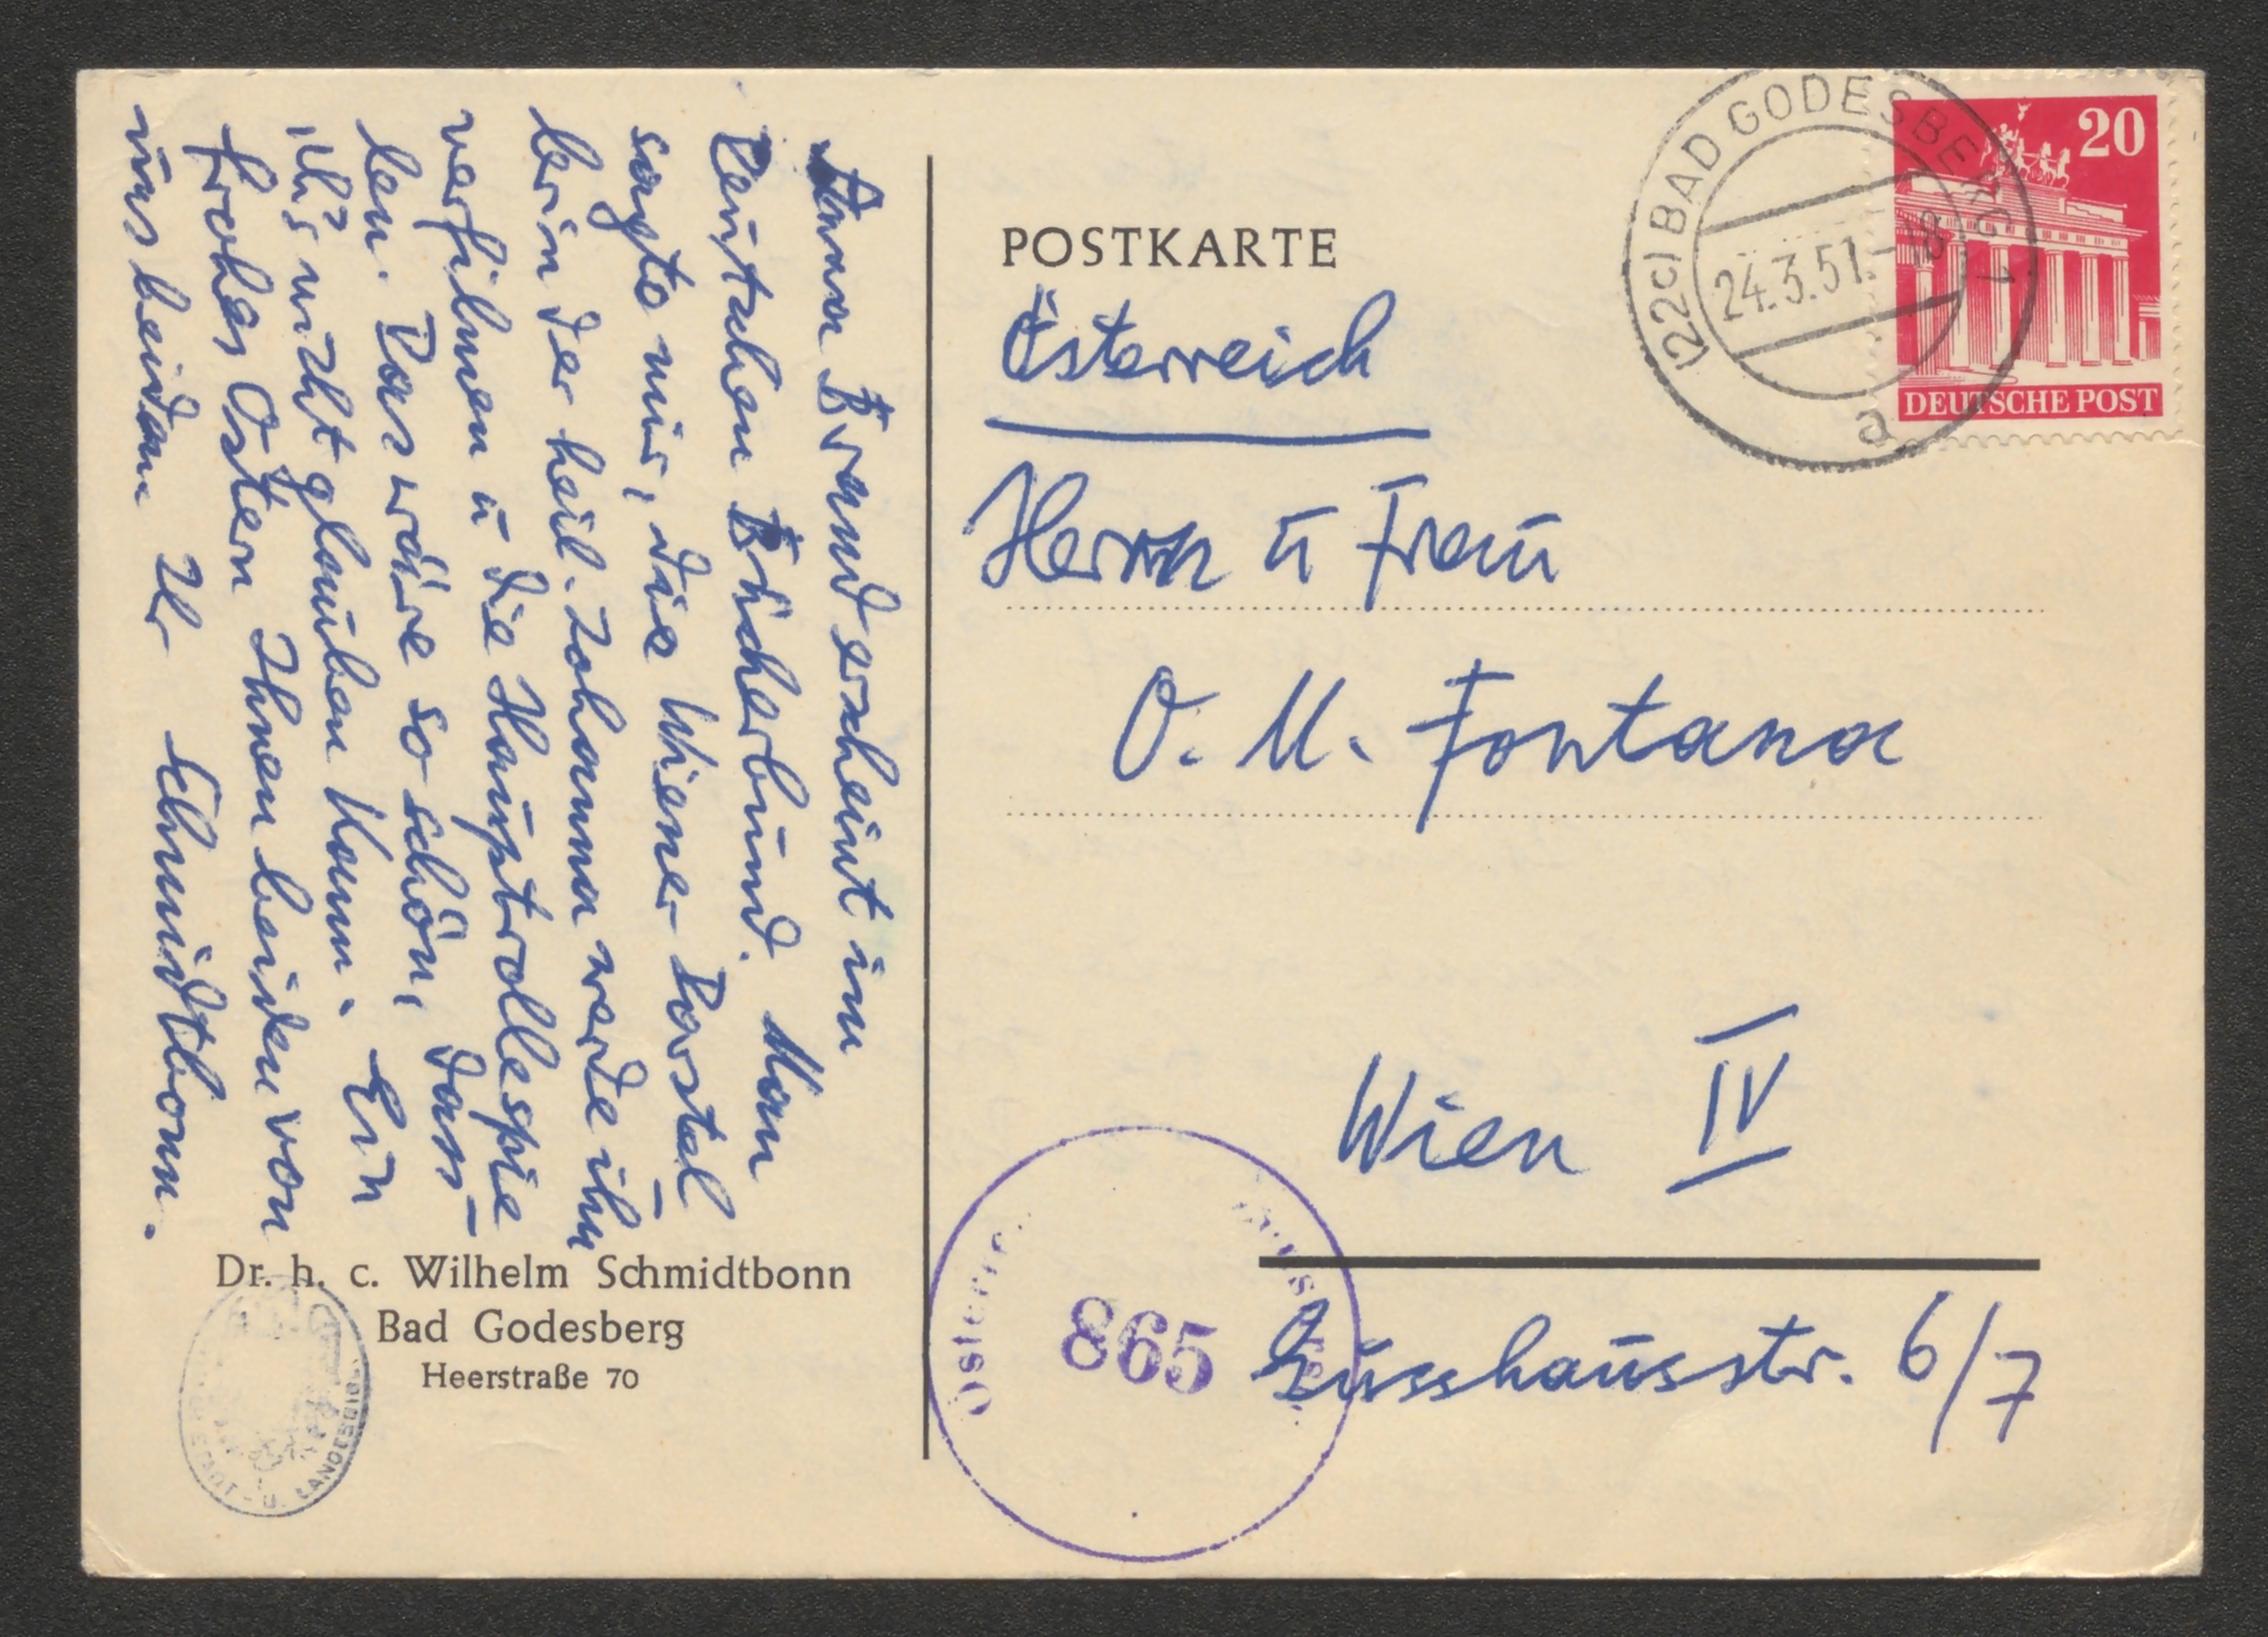 Anna Brand erscheint im
Deutschen Bücherbund. Man
sagte mir, die Wiener Darstel
lerin der heil. Johanna werde ihn
verfilmen u die Hauptrolle spie
len. Das wäre so schön, dass
ich's nicht glauben kann. Ein
frohes Ostern Ihnen beiden von
uns beiden Ihr Schmidtbonn.
Dr. h. c. Wilhelm Schmidtbonn
Bad Godesberg
Heerstraße 70
STADT- U. LANDESBIBL.
POSTKARTE
Österreich
Herrn u Frau
O. M. Fontana
Wien IV
Gusshausstr. 6/7
(22c) BAD GODESBERG 1
24.3.51.-18
e
20
DEUTSCHE POST
865